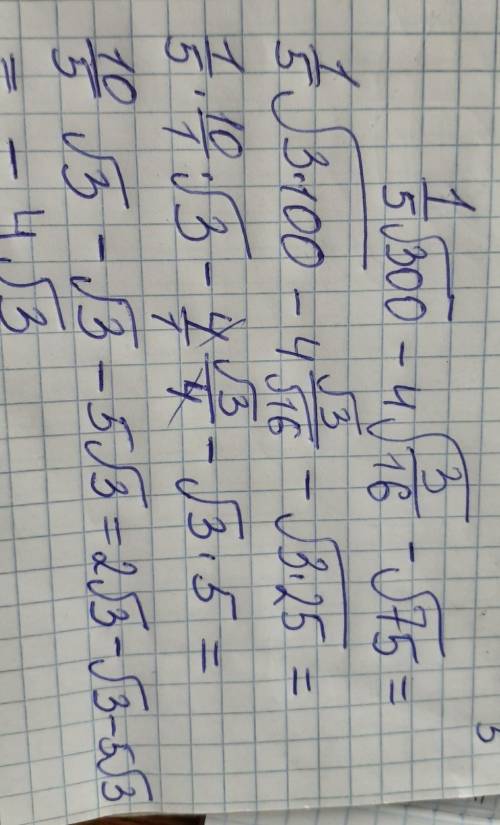 1/5√300 − 4√(3/16) − √75 =
1/5√(3·100) − 4 √3/√16 − √(3·25) =
1/5 · 10/1 · √3 − 4/1 √3/4 − √3 · 5 =
10/5 √3 − √3 − 5√3 = 2√3 − √3 − 5√3
= − 4√3